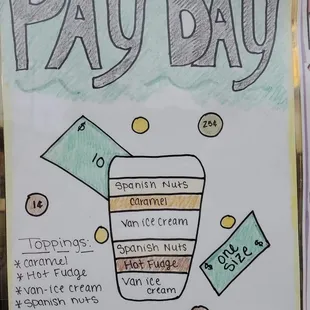 PAY DAY
25¢
10
1¢
Spanish Nuts
Caramel
Van Ice Cream
Spanish Nuts
Hot Fudge
Van Ice
cream
one
size
Toppings:
* Caramel
* Hot Fudge
* Van-ice Cream
* Spanish nuts